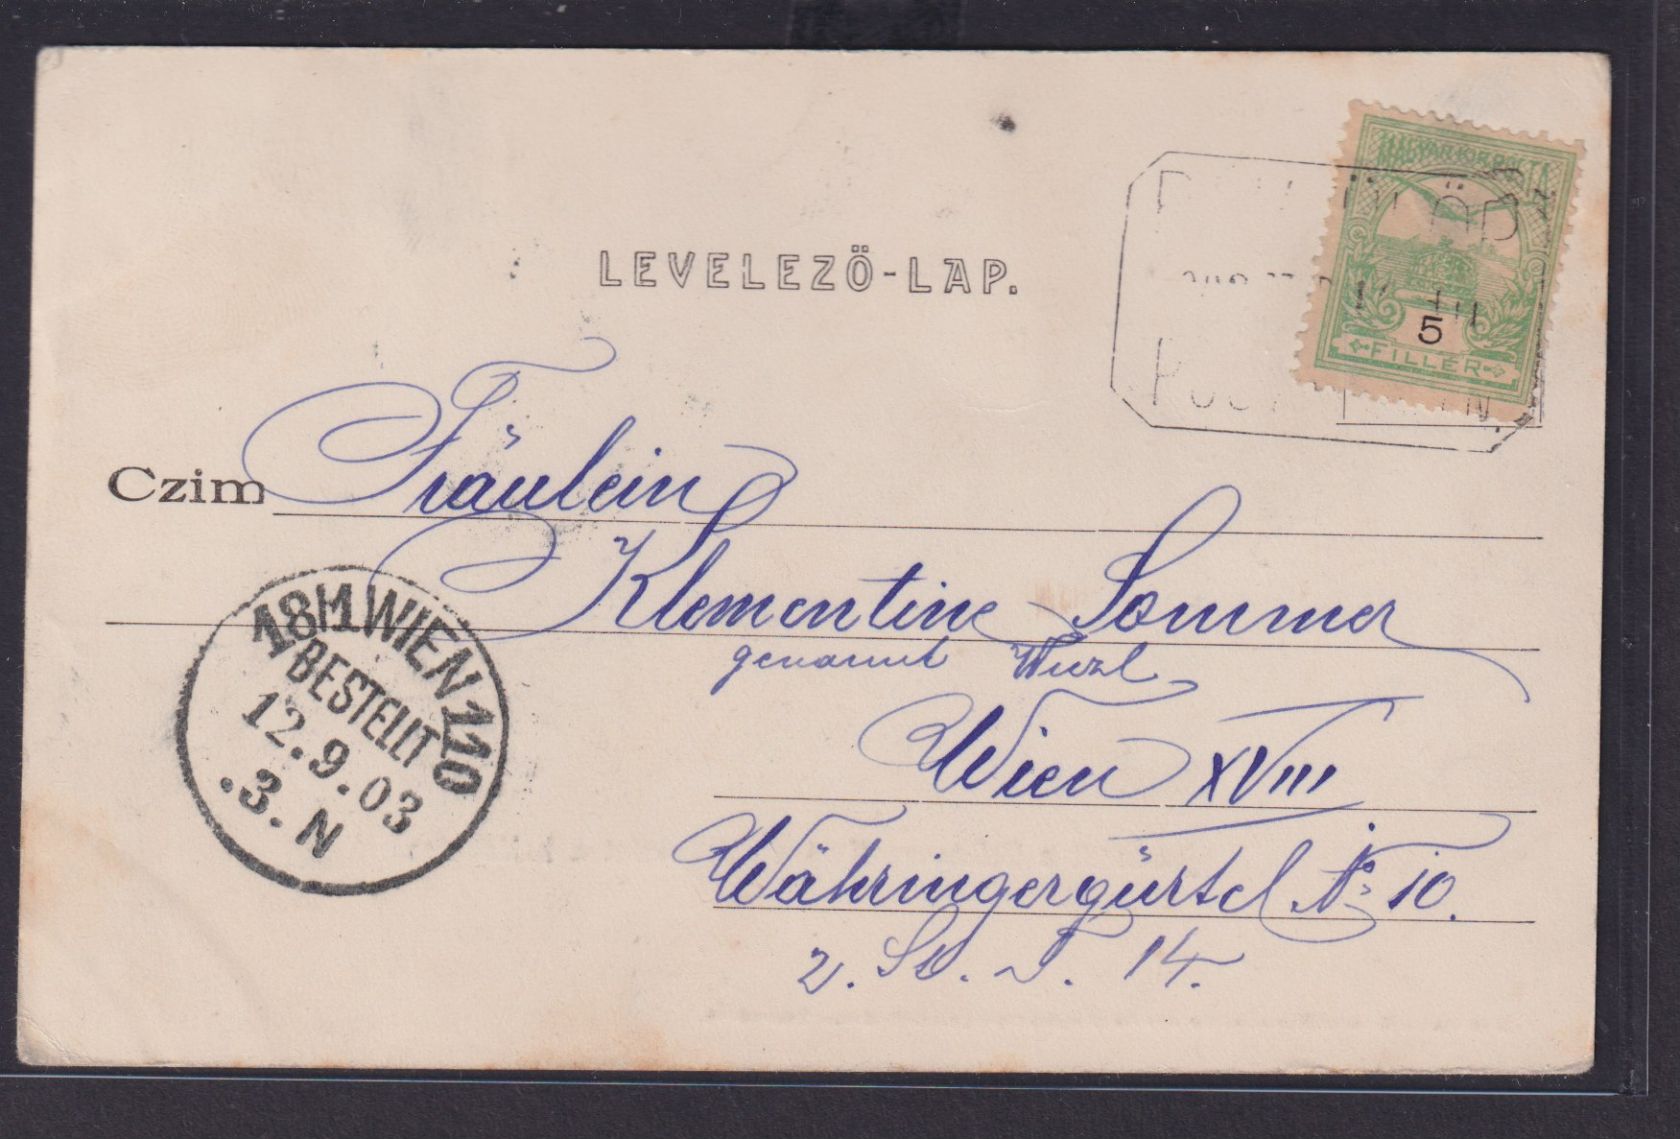 LEVELEZÖ-LAP.
MAGYAR KIR. POSTA
5
FILLÉR
Czim Fräulein
Klementine Sommer
genannt Wuzl
Wien XVIII
Währingergürtel No 10.
2. St. T. 14.
18/1 WIEN 110
BESTELLT
12.9.03
.3.N